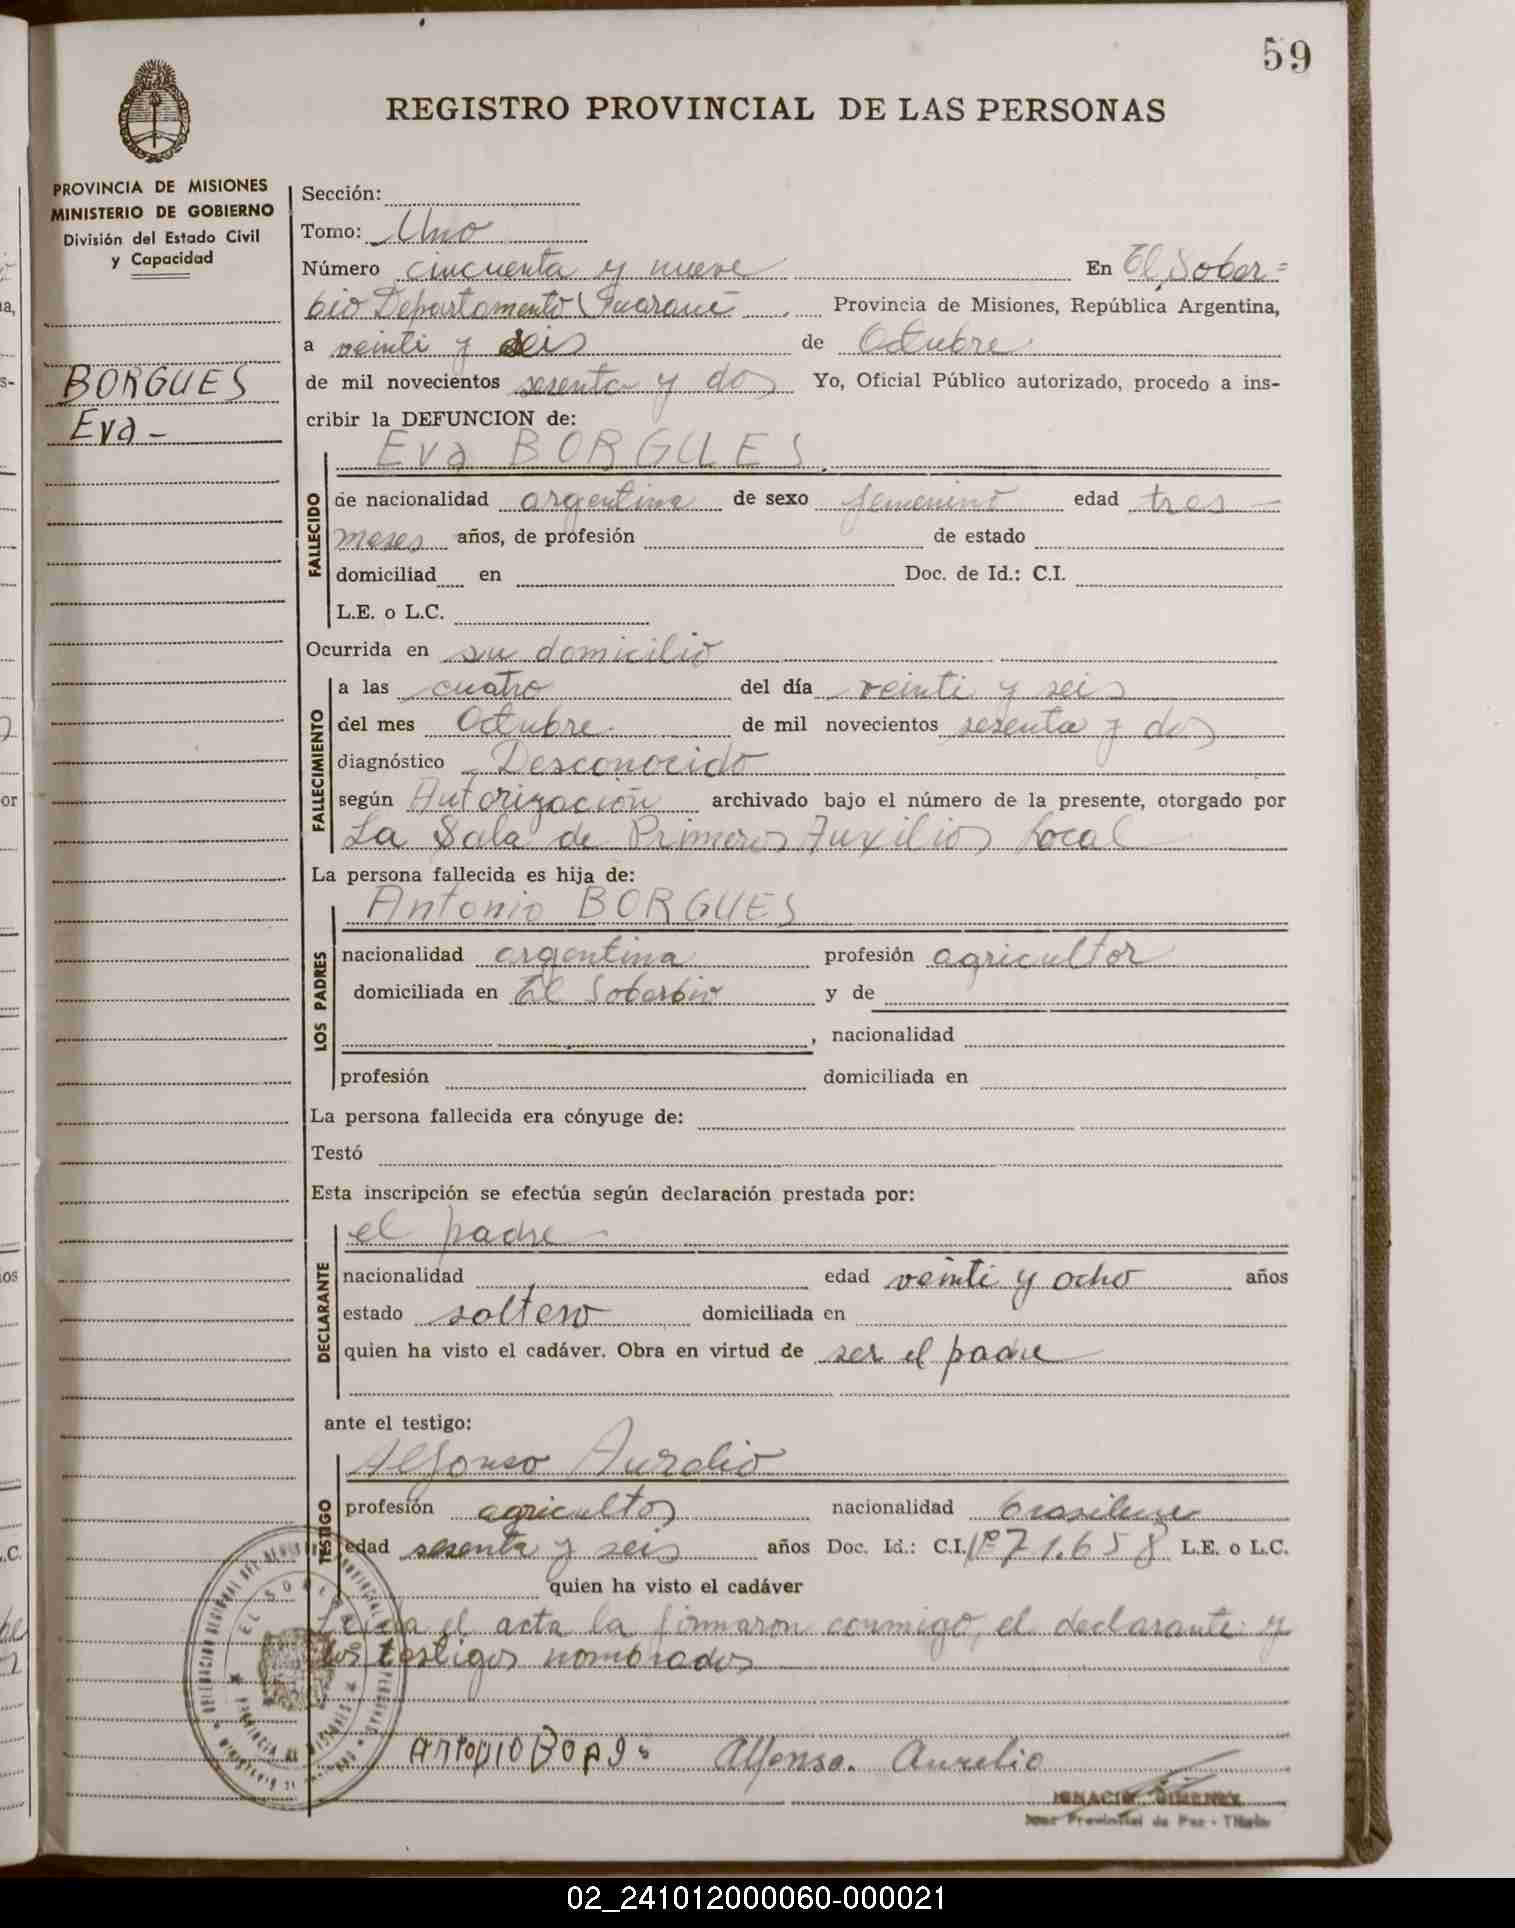 59
REGISTRO PROVINCIAL DE LAS PERSONAS
PROVINCIA DE MISIONES
MINISTERIO DE GOBIERNO
División del Estado Civil
y Capacidad
BORGUES
Eva -
Sección:
Tomo: Uno
Número cincuenta y nueve En El Sober=
bio Departamento Guaraní Provincia de Misiones, República Argentina,
a veinti y seis de Octubre
de mil novecientos sesenta y dos Yo, Oficial Público autorizado, procedo a ins-
cribir la DEFUNCION de:
Eva BORGUES.
FALLECIDO
de nacionalidad argentina de sexo femenino edad tres -
meses años, de profesión de estado
domiciliad en Doc. de Id.: C.I.
L.E. o L.C.
Ocurrida en su domicilio
FALLECIMIENTO
a las cuatro del día veinti y seis
del mes Octubre de mil novecientos sesenta y dos
diagnóstico Desconocido
según Autorización archivado bajo el número de la presente, otorgado por
La Sala de Primeros Auxilios Local
La persona fallecida es hija de:
LOS PADRES
Antonio BORGUES
nacionalidad argentina profesión agricultor
domiciliada en El Soberbio y de
, nacionalidad
profesión domiciliada en
La persona fallecida era cónyuge de:
Testó
Esta inscripción se efectúa según declaración prestada por:
DECLARANTE
el padre
nacionalidad edad veinti y ocho años
estado soltero domiciliada en
quien ha visto el cadáver. Obra en virtud de ser el padre
ante el testigo:
TESTIGO
Alfonso Aurelio
profesión agricultor nacionalidad brasilera
edad sesenta y seis años Doc. Id.: C.I. Nº 71.658 L.E. o L.C.
quien ha visto el cadáver
Leida el acta la firmaron conmigo, el declarante y
los testigos nombrados
EL SOBERBIO
PROVINCIA DE MISIONES
Antonio Alfonso. Aurelio
IGNACIO GIMENEZ
Juez Provincial de Paz - Titular
02_241012000060-000021